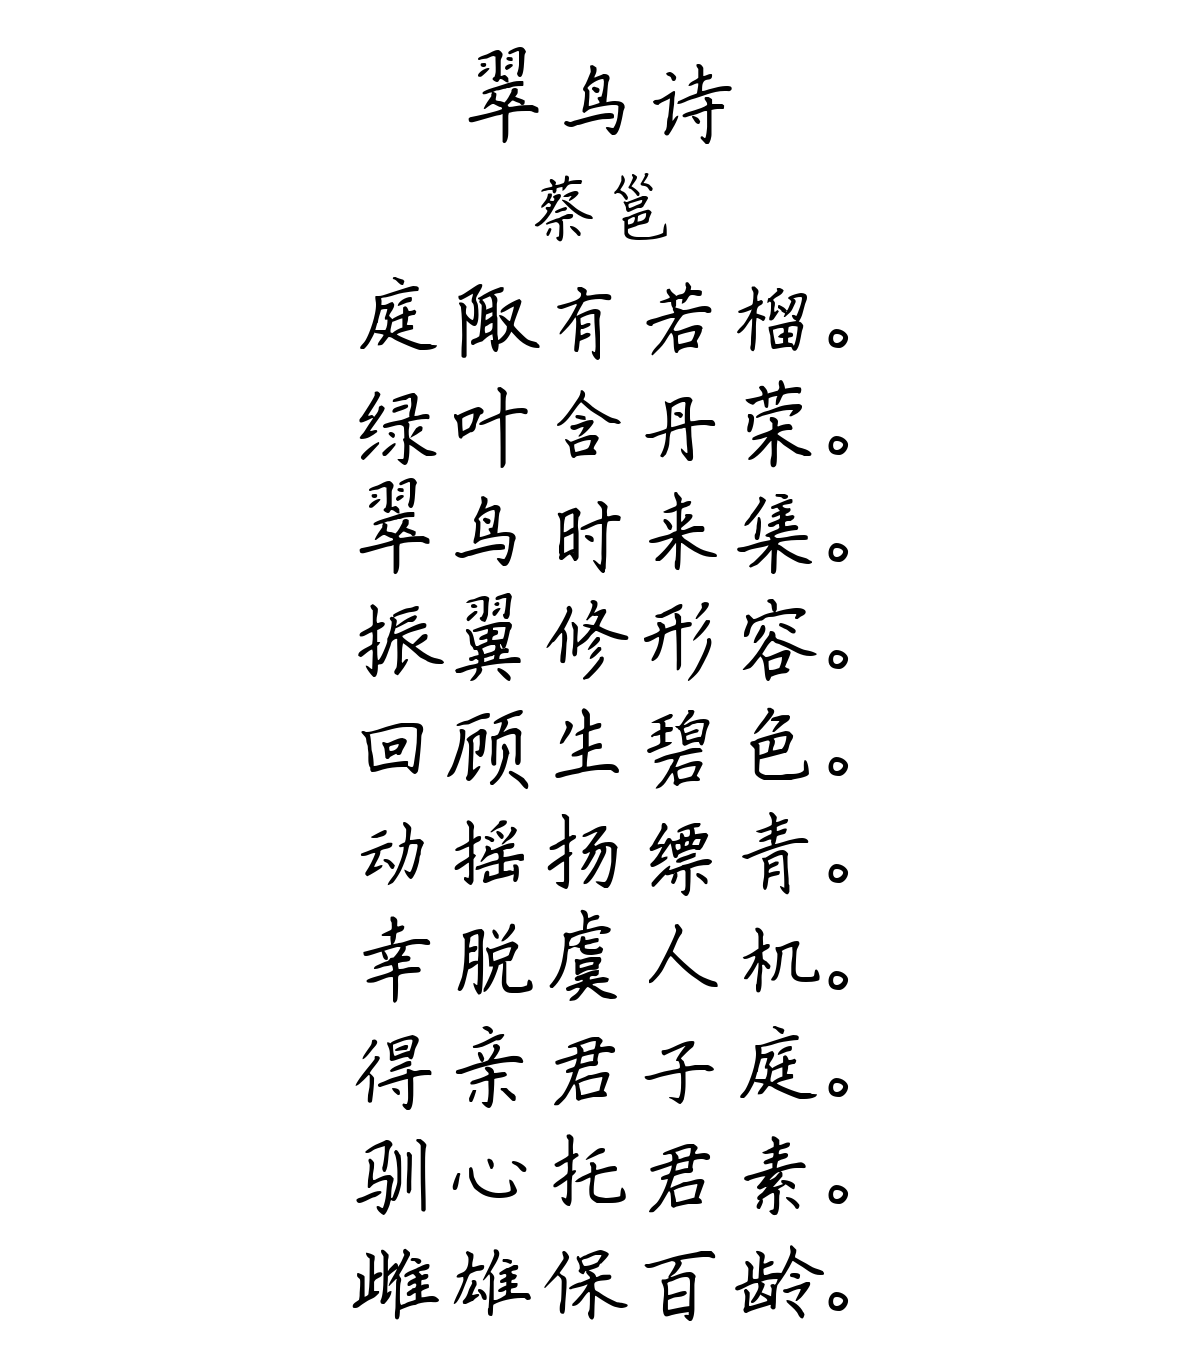 翠鸟诗
蔡邕
庭陬有若榴。
绿叶含丹荣。
翠鸟时来集。
振翼修形容。
回顾生碧色。
动摇扬缥青。
幸脱虞人机。
得亲君子庭。
驯心托君素。
雌雄保百龄。